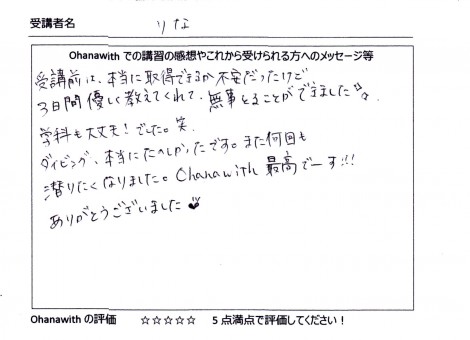 受講者名 りな
Ohanawith での講習の感想やこれから受けられる方へのメッセージ等
受講前は、本当に取得できるか不安だったけど
3日間優しく教えてくれて、無事とることができました
学科も大丈夫!でした。笑
ダイビング、本当にたのしかったです。また何回も
潜りたくなりました。Ohanawith 最高でーす!!!
ありがとうございました
Ohanawith の評価 ☆☆☆☆☆ 5点満点で評価してください!